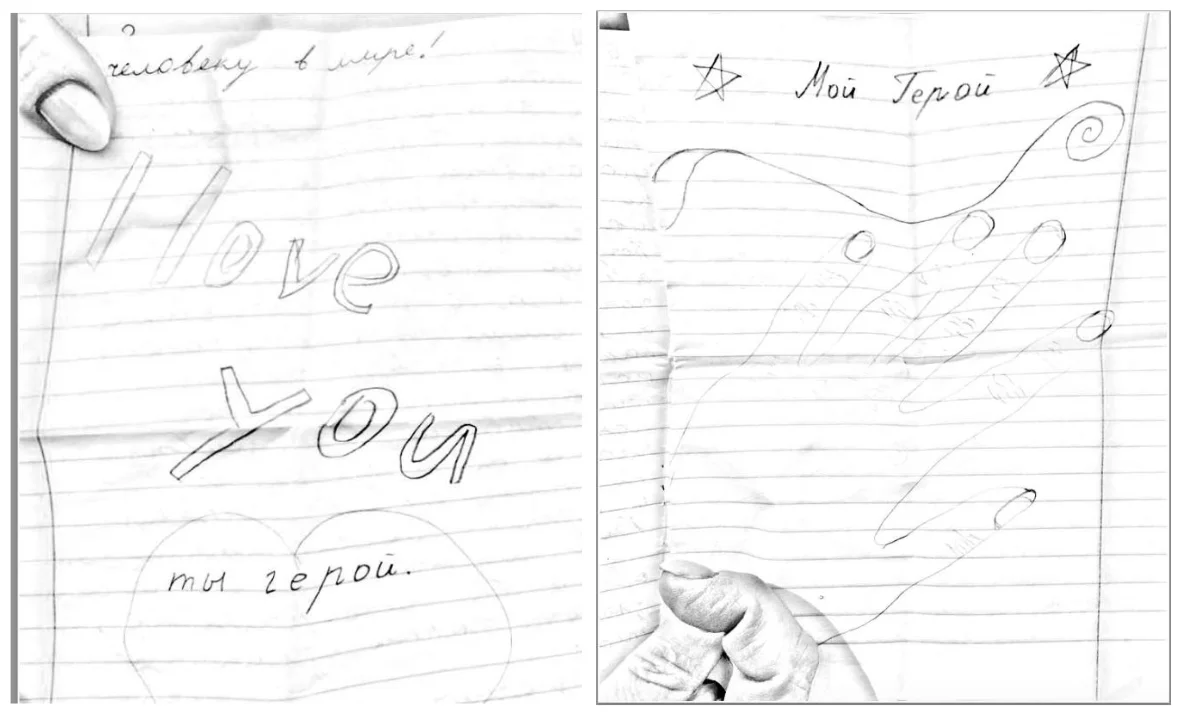 человеку в мире!
I love
you
ты герой.
Мой Герой